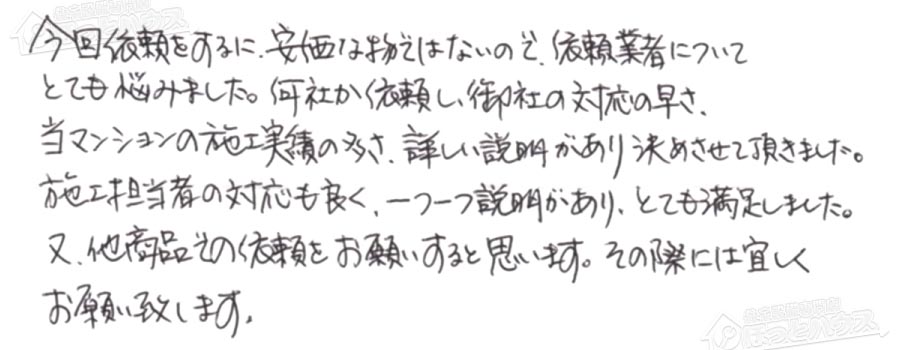 今回依頼をするに、安価な物ではないので、依頼業者について
とても悩みました。何社か依頼し、御社の対応の早さ、
当マンションの施工実績の多さ、詳しい説明があり決めさせて頂きました。
施工担当者の対応も良く、一つ一つ説明があり、とても満足しました。
又、他商品での依頼をお願いすると思います。その際には宜しく
お願い致します。
ほっとハウス